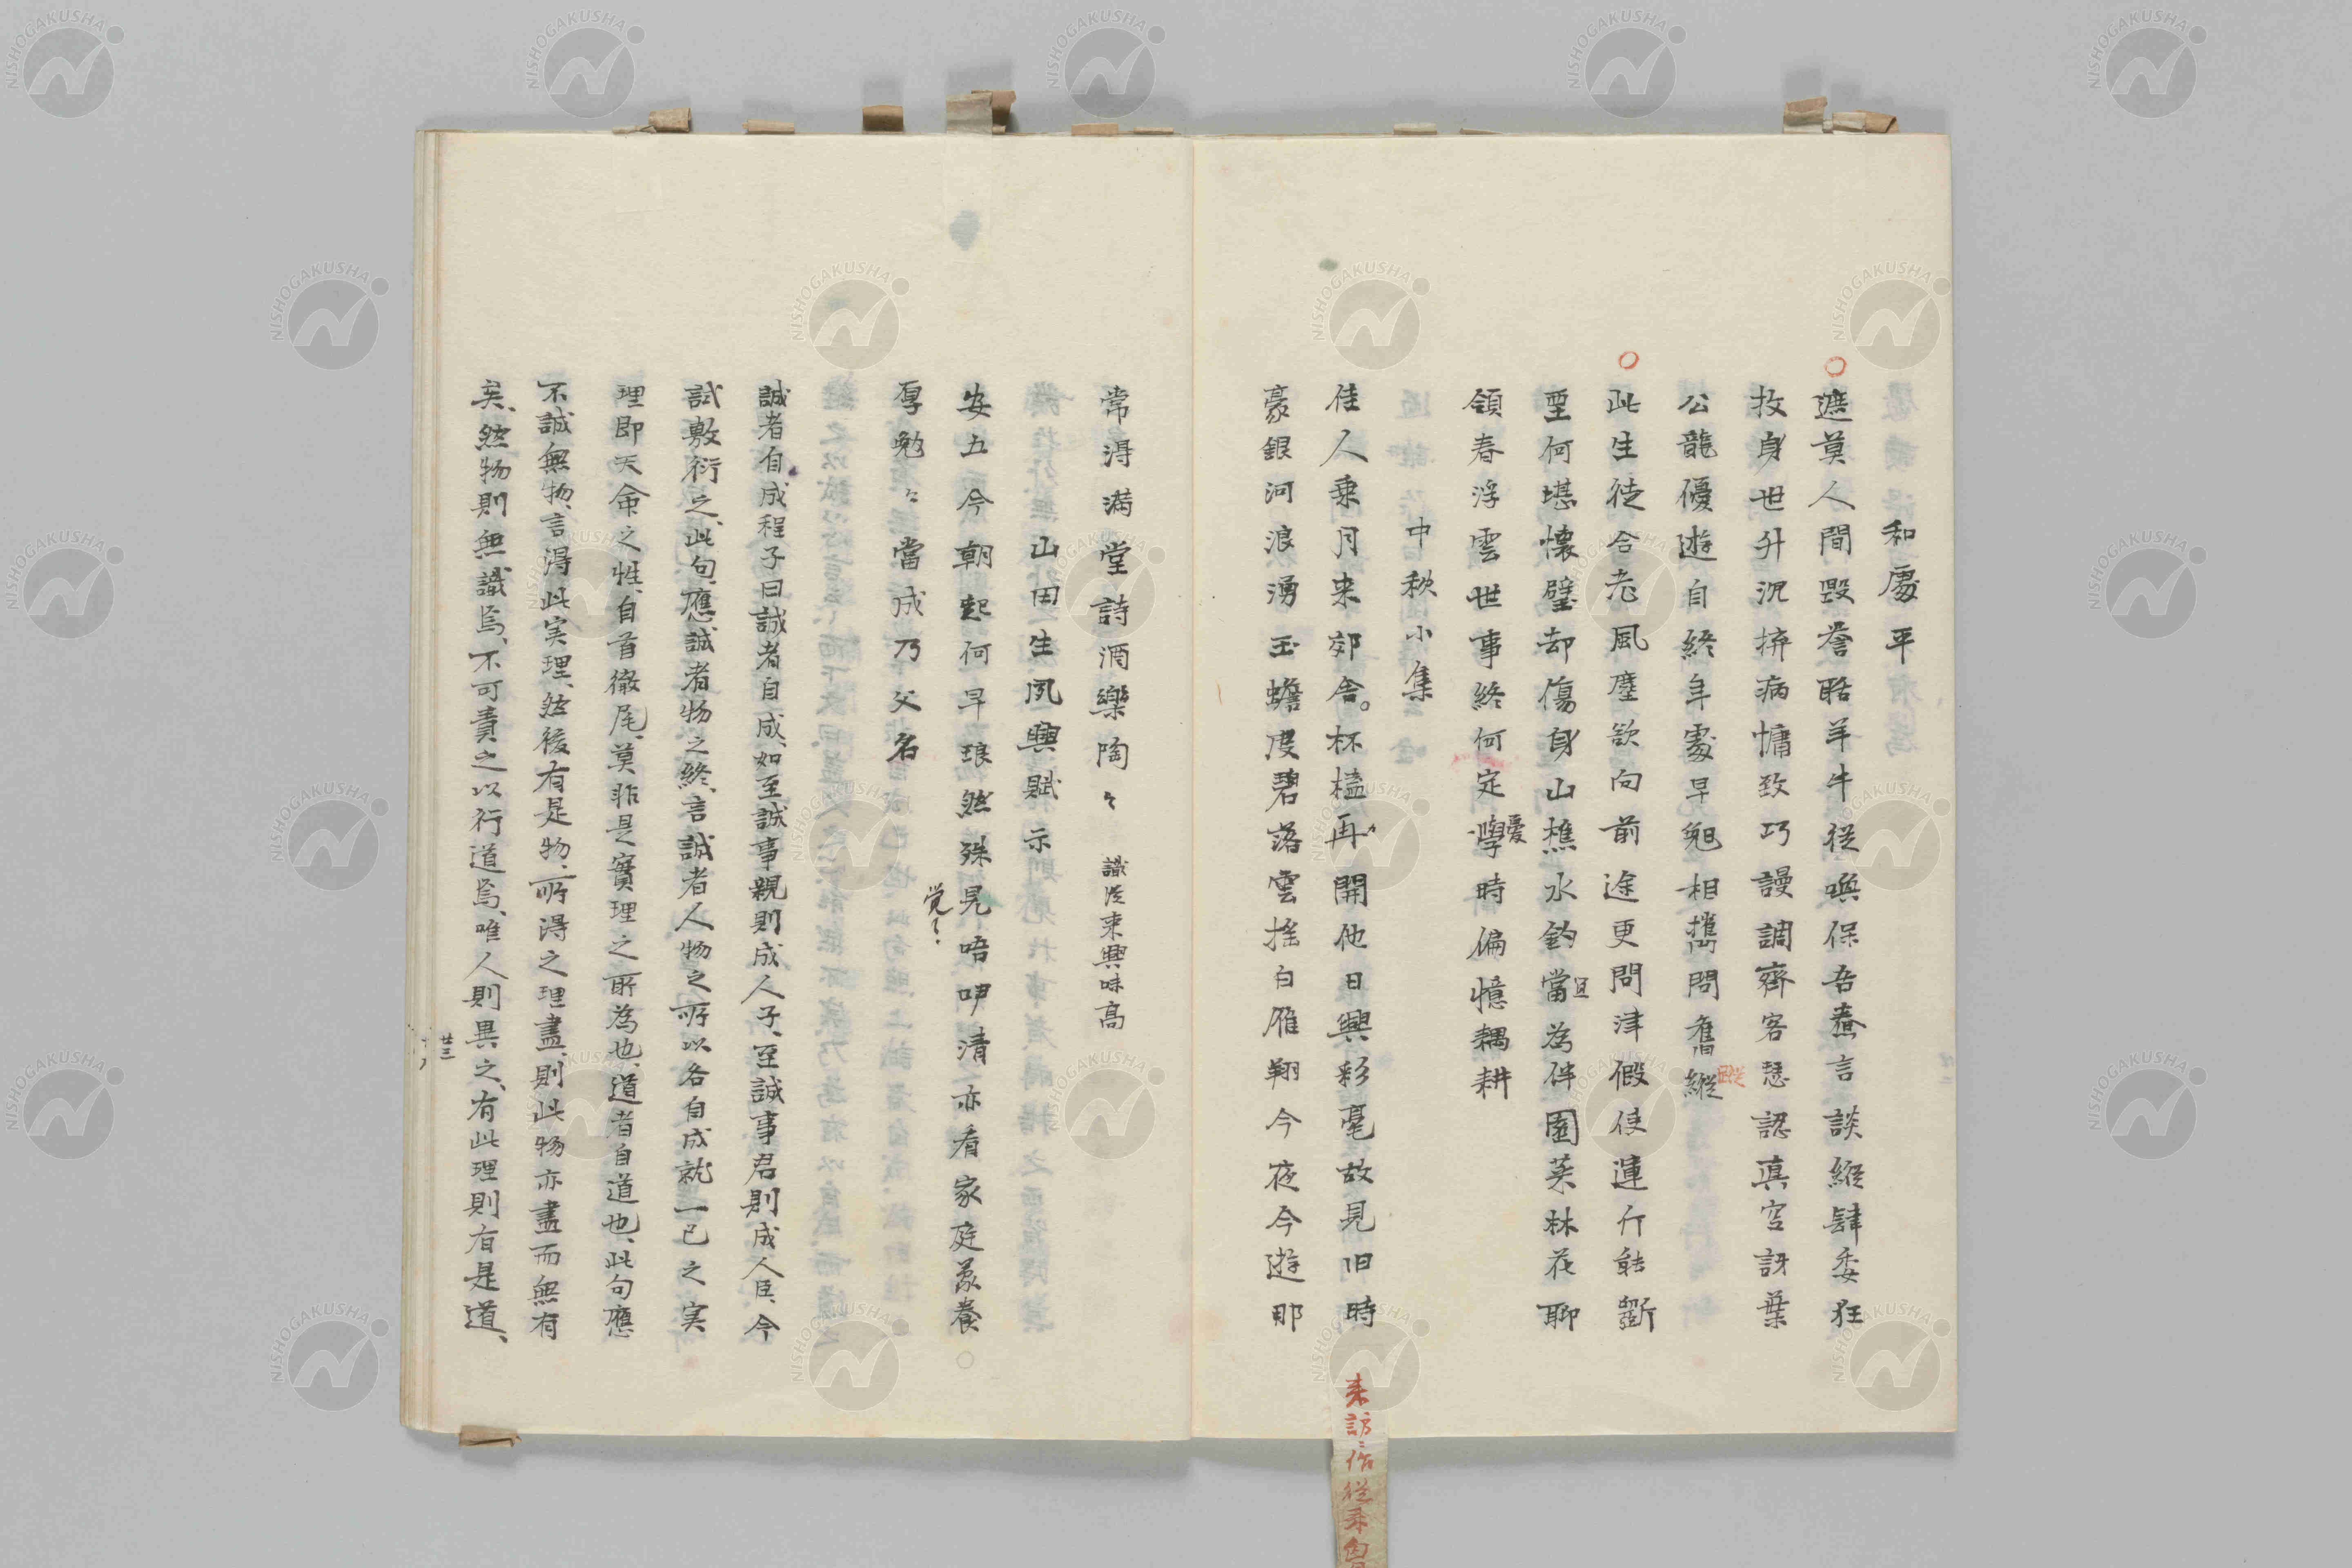 和處平
遮莫人間毀誉聒羊牛従喚保吾真言談縦肆委狂
投身世升沉拚病慵致巧謾調齊客慧認真空訝葉
公龍優遊自終年處早晚相攜問舊縦
蹤
此生徒合老風塵欲向前途更問津假使運斤能斲
堊何堪懐璧却傷身山樵水釣當為伴園菓林花聊
且
領春浮雲世事終何定學時偏憶耦耕
憂
中秋小集
佳人乗月来郊舎杯榼再開他日興彩毫故見旧時
豪銀河浪湧玉蟾度碧落雲揺白雁翔今夜今遊那
来訪作従来
常得満堂詩酒樂陶々 識従来興味高
山田生夙興賦示
安五今朝起何早琅然殊晃唔吚清亦看家庭蒙養
覚
厚勉々當成乃父名
誠者自成程子曰誠者自成、如至誠事親則成人子、至誠事君則成人臣、今
試敷衍之、此句應誠者物之終、言誠者人物之所以各自成就一己之実
理即天命之性、自首徹尾、莫非是實理之所為也、道者自道也、此句應
不誠無物、言得此実理、然後有是物、所得之理盡、則此物亦盡而無有
矣、然物則無識焉、不可責之以行道焉、唯人則異之、有此理則有是道、
廿三